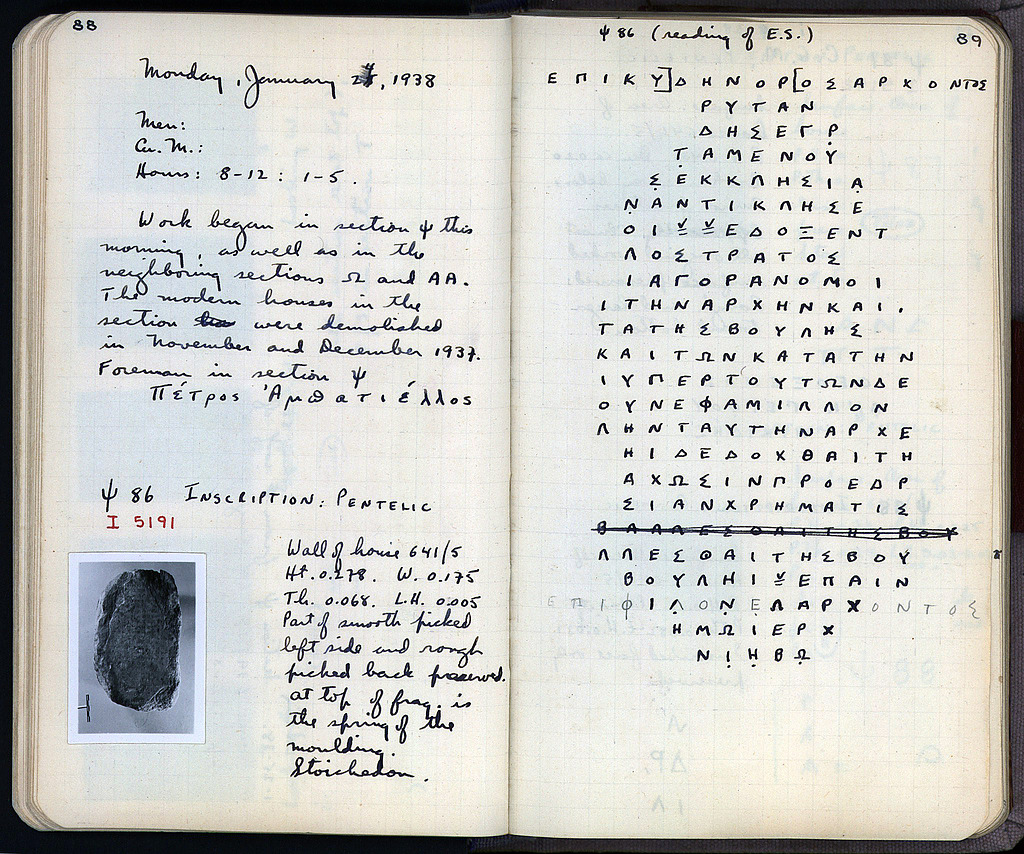 88
Monday, January 24, 1938
Men:
Cu. M.:
Hours: 8-12 : 1-5.
Work began in section ψ this
morning, as well as in the
neighboring sections Ω and AA.
The modern houses in the
section were demolished
in November and December 1937.
Foreman in section ψ
Πέτρος Ἀμπατιέλλος
ψ 86 INSCRIPTION: PENTELIC
I 5191
Wall of house 641/5
Ht. 0.278. W. 0.175
Th. 0.068. L.H. 0.005
Part of smooth picked
left side and rough
picked back preserved.
at top of frag. is
the spring of the
moulding.
Stoichedon.
89
ψ 86 (reading of E.S.)
ΕΠΙΚΥ]ΔΗΝΟΡ[ΟΣΑΡΧΟΝΤΟΣ
ΡΥΤΑΝ
ΔΗΣΕΓΡ
ΤΑΜΕΝΟΥ
ΣΕΚΚΛΗΣΙΑ
ΝΑΝΤΙΚΛΗΣΕ
ΟΙ v v ΕΔΟΞΕΝΤ
ΛΟΣΤΡΑΤΟΣ
ΙΑΓΟΡΑΝΟΜΟΙ
ΙΤΗΝΑΡΧΗΝΚΑΙ.
ΤΑΤΗΣΒΟΥΛΗΣ
ΚΑΙΤΩΝΚΑΤΑΤΗΝ
ΙΥΠΕΡΤΟΥΤΩΝΔΕ
ΟΥΝΕΦΑΜΙΛΛΟΝ
ΛΗΝΤΑΥΤΗΝΑΡΧΕ
ΗΙΔΕΔΟΧΘΑΙΤΗ
ΑΧΩΣΙΝΠΡΟΕΔΡ
ΣΙΑΝΧΡΗΜΑΤΙΣ
ΛΛΕΣΘΑΙΤΗΣΒΟΥ
ΒΟΥΛΗΙ v ΕΠΑΙΝ
ΕΠΙΦΙΛΟΝΕΛΑΡΧΟΝΤΟΣ
ΗΜΩΙΕΡΧ
ΝΙΗΒΩ